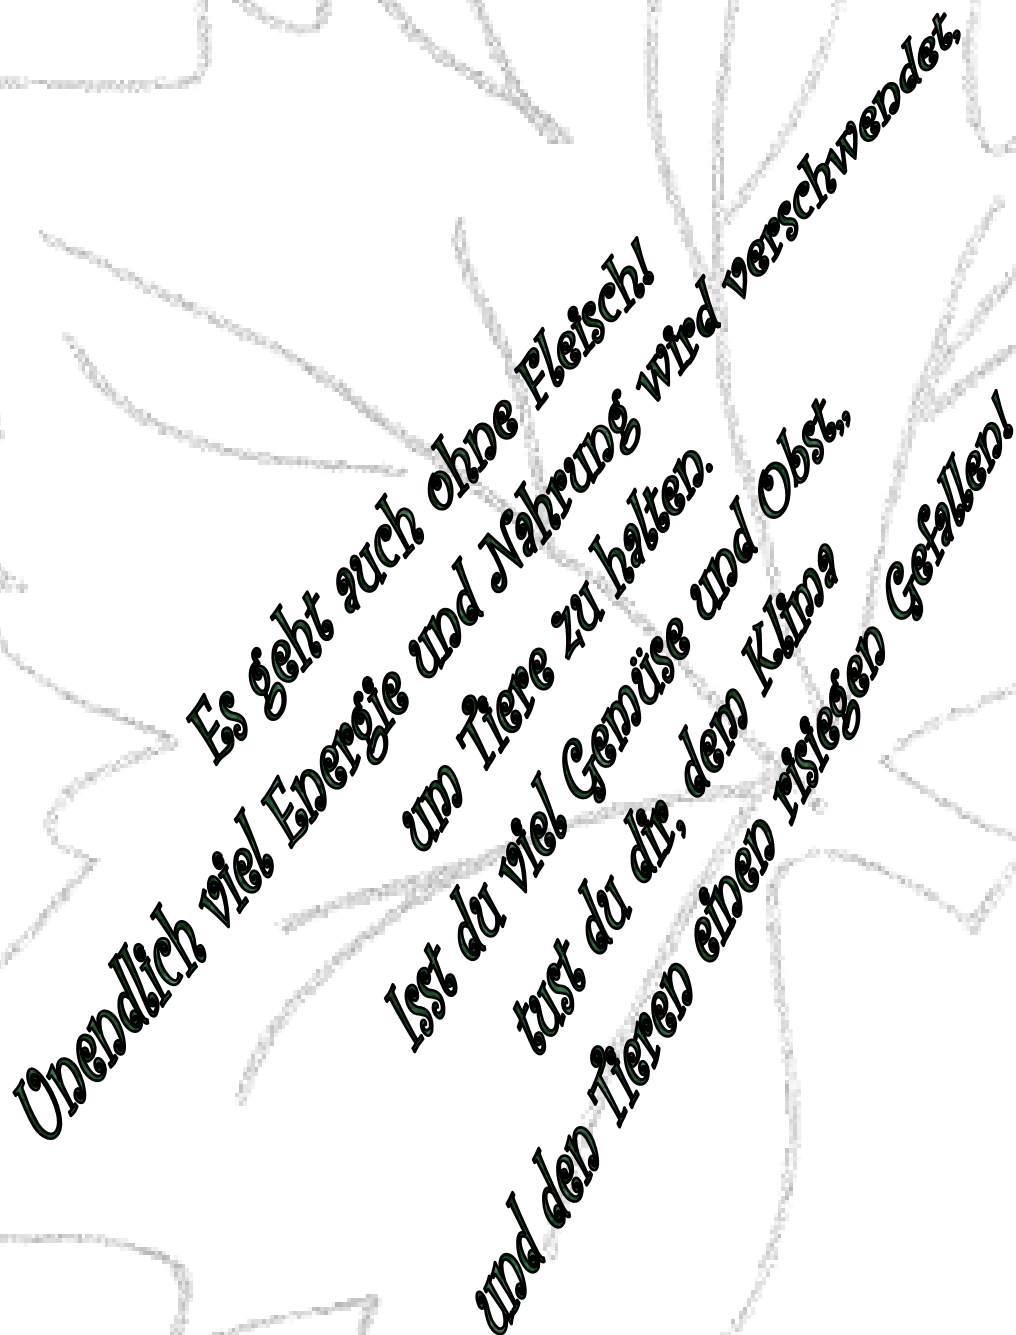 Es geht auch ohne Fleisch!
Unendlich viel Energie und Nahrung wird verschwendet,
um Tiere zu halten.
Isst du viel Gemüse und Obst,,
tust du dir, dem Klima
und den Tieren einen risiegen Gefallen!